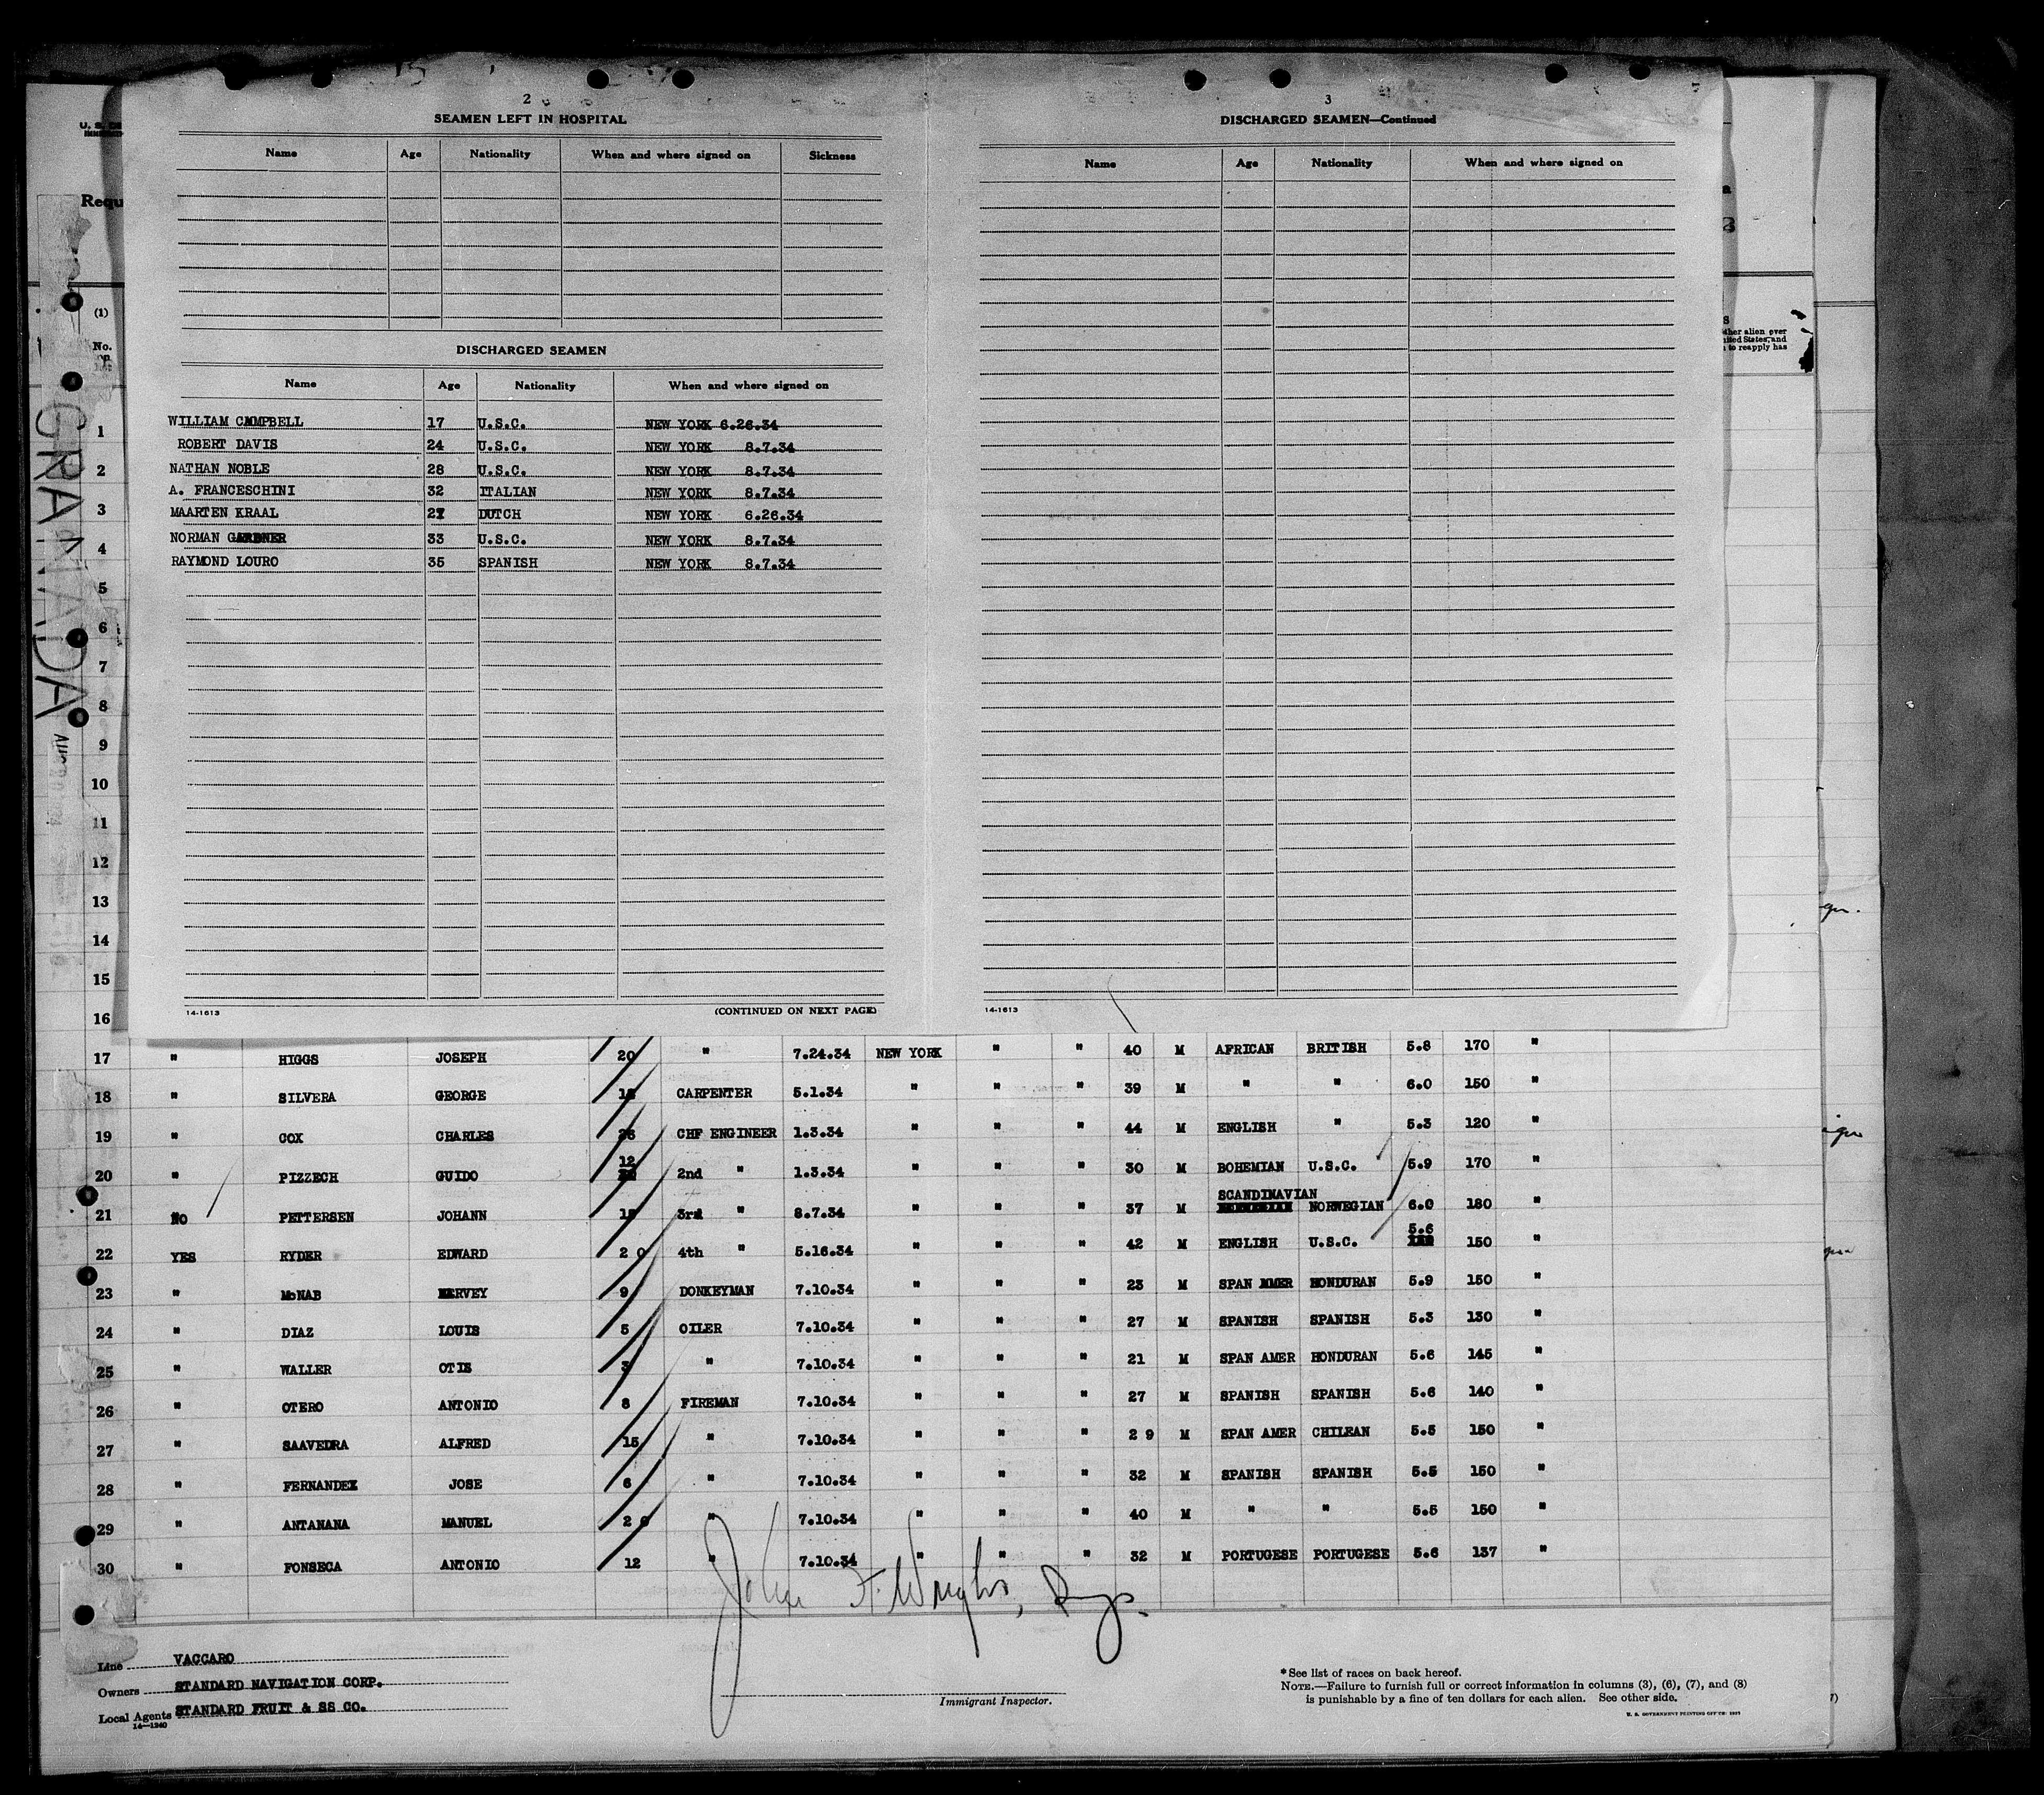 2
SEAMEN LEFT IN HOSPITAL
Name Age Nationality When and where signed on Sickness
DISCHARGED SEAMEN
Name Age Nationality When and where signed on
WILLIAM CAMPBELL 17 U.S.C. NEW YORK 6.26.34
ROBERT DAVIS 24 U.S.C. NEW YORK 8.7.34
NATHAN NOBLE 28 U.S.C. NEW YORK 8.7.34
A. FRANCESCHINI 32 ITALIAN NEW YORK 8.7.34
MAARTEN KRAAL 27 DUTCH NEW YORK 6.26.34
NORMAN GARDNER 33 U.S.C. NEW YORK 8.7.34
RAYMOND LOURO 35 SPANISH NEW YORK 8.7.34
14-1613 (CONTINUED ON NEXT PAGE)
3
DISCHARGED SEAMEN—Continued
Name Age Nationality When and where signed on
14-1613
Requ
(1)
No.
GRANADA
1
2
3
4
5
6
7
8
9
10
11
12
13
14
15
16
ther alien over
nited States, and
to reapply has
17 " HIGGS JOSEPH 20 " 7.24.34 NEW YORK " " 40 M AFRICAN BRITISH 5.8 170 "
18 " SILVERA GEORGE CARPENTER 5.1.34 " " " 39 M " " 6.0 150 "
19 " COX CHARLES 26 CHF ENGINEER 1.3.34 " " " 44 M ENGLISH " 5.3 120 "
20 " PIZZECH GUIDO 12 2nd " 1.3.34 " " " 30 M BOHEMIAN U.S.C. 5.9 170 "
21 NO PETTERSEN JOHANN 15 3rd " 8.7.34 " " " 37 M SCANDINAVIAN NORWEGIAN 6.0 180 "
22 YES RYDER EDWARD 20 4th " 5.16.34 " " " 42 M ENGLISH U.S.C. 5.6 150 "
23 " McNAB HERVEY 9 DONKEYMAN 7.10.34 " " " 23 M SPAN AMER HONDURAN 5.9 150 "
24 " DIAZ LOUIS 5 OILER 7.10.34 " " " 27 M SPANISH SPANISH 5.3 130 "
25 " WALLER OTIS 3 " 7.10.34 " " " 21 M SPAN AMER HONDURAN 5.6 145 "
26 " OTERO ANTONIO 8 FIREMAN 7.10.34 " " " 27 M SPANISH SPANISH 5.6 140 "
27 " SAAVEDRA ALFRED 15 " 7.10.34 " " " 29 M SPAN AMER CHILEAN 5.5 150 "
28 " FERNANDEZ JOSE 6 " 7.10.34 " " " 32 M SPANISH SPANISH 5.5 150 "
29 " ANTANANA MANUEL 20 " 7.10.34 " " " 40 M " " 5.5 150 "
30 " FONSECA ANTONIO 12 " 7.10.34 " " " 32 M PORTUGESE PORTUGESE 5.6 137 "
John F. Wright, Insp.
Line VACCARO
Owners STANDARD NAVIGATION CORP.
Local Agents STANDARD FRUIT & SS CO.
14—1240
Immigrant Inspector.
*See list of races on back hereof.
NOTE.—Failure to furnish full or correct information in columns (3), (6), (7), and (8)
is punishable by a fine of ten dollars for each alien. See other side.